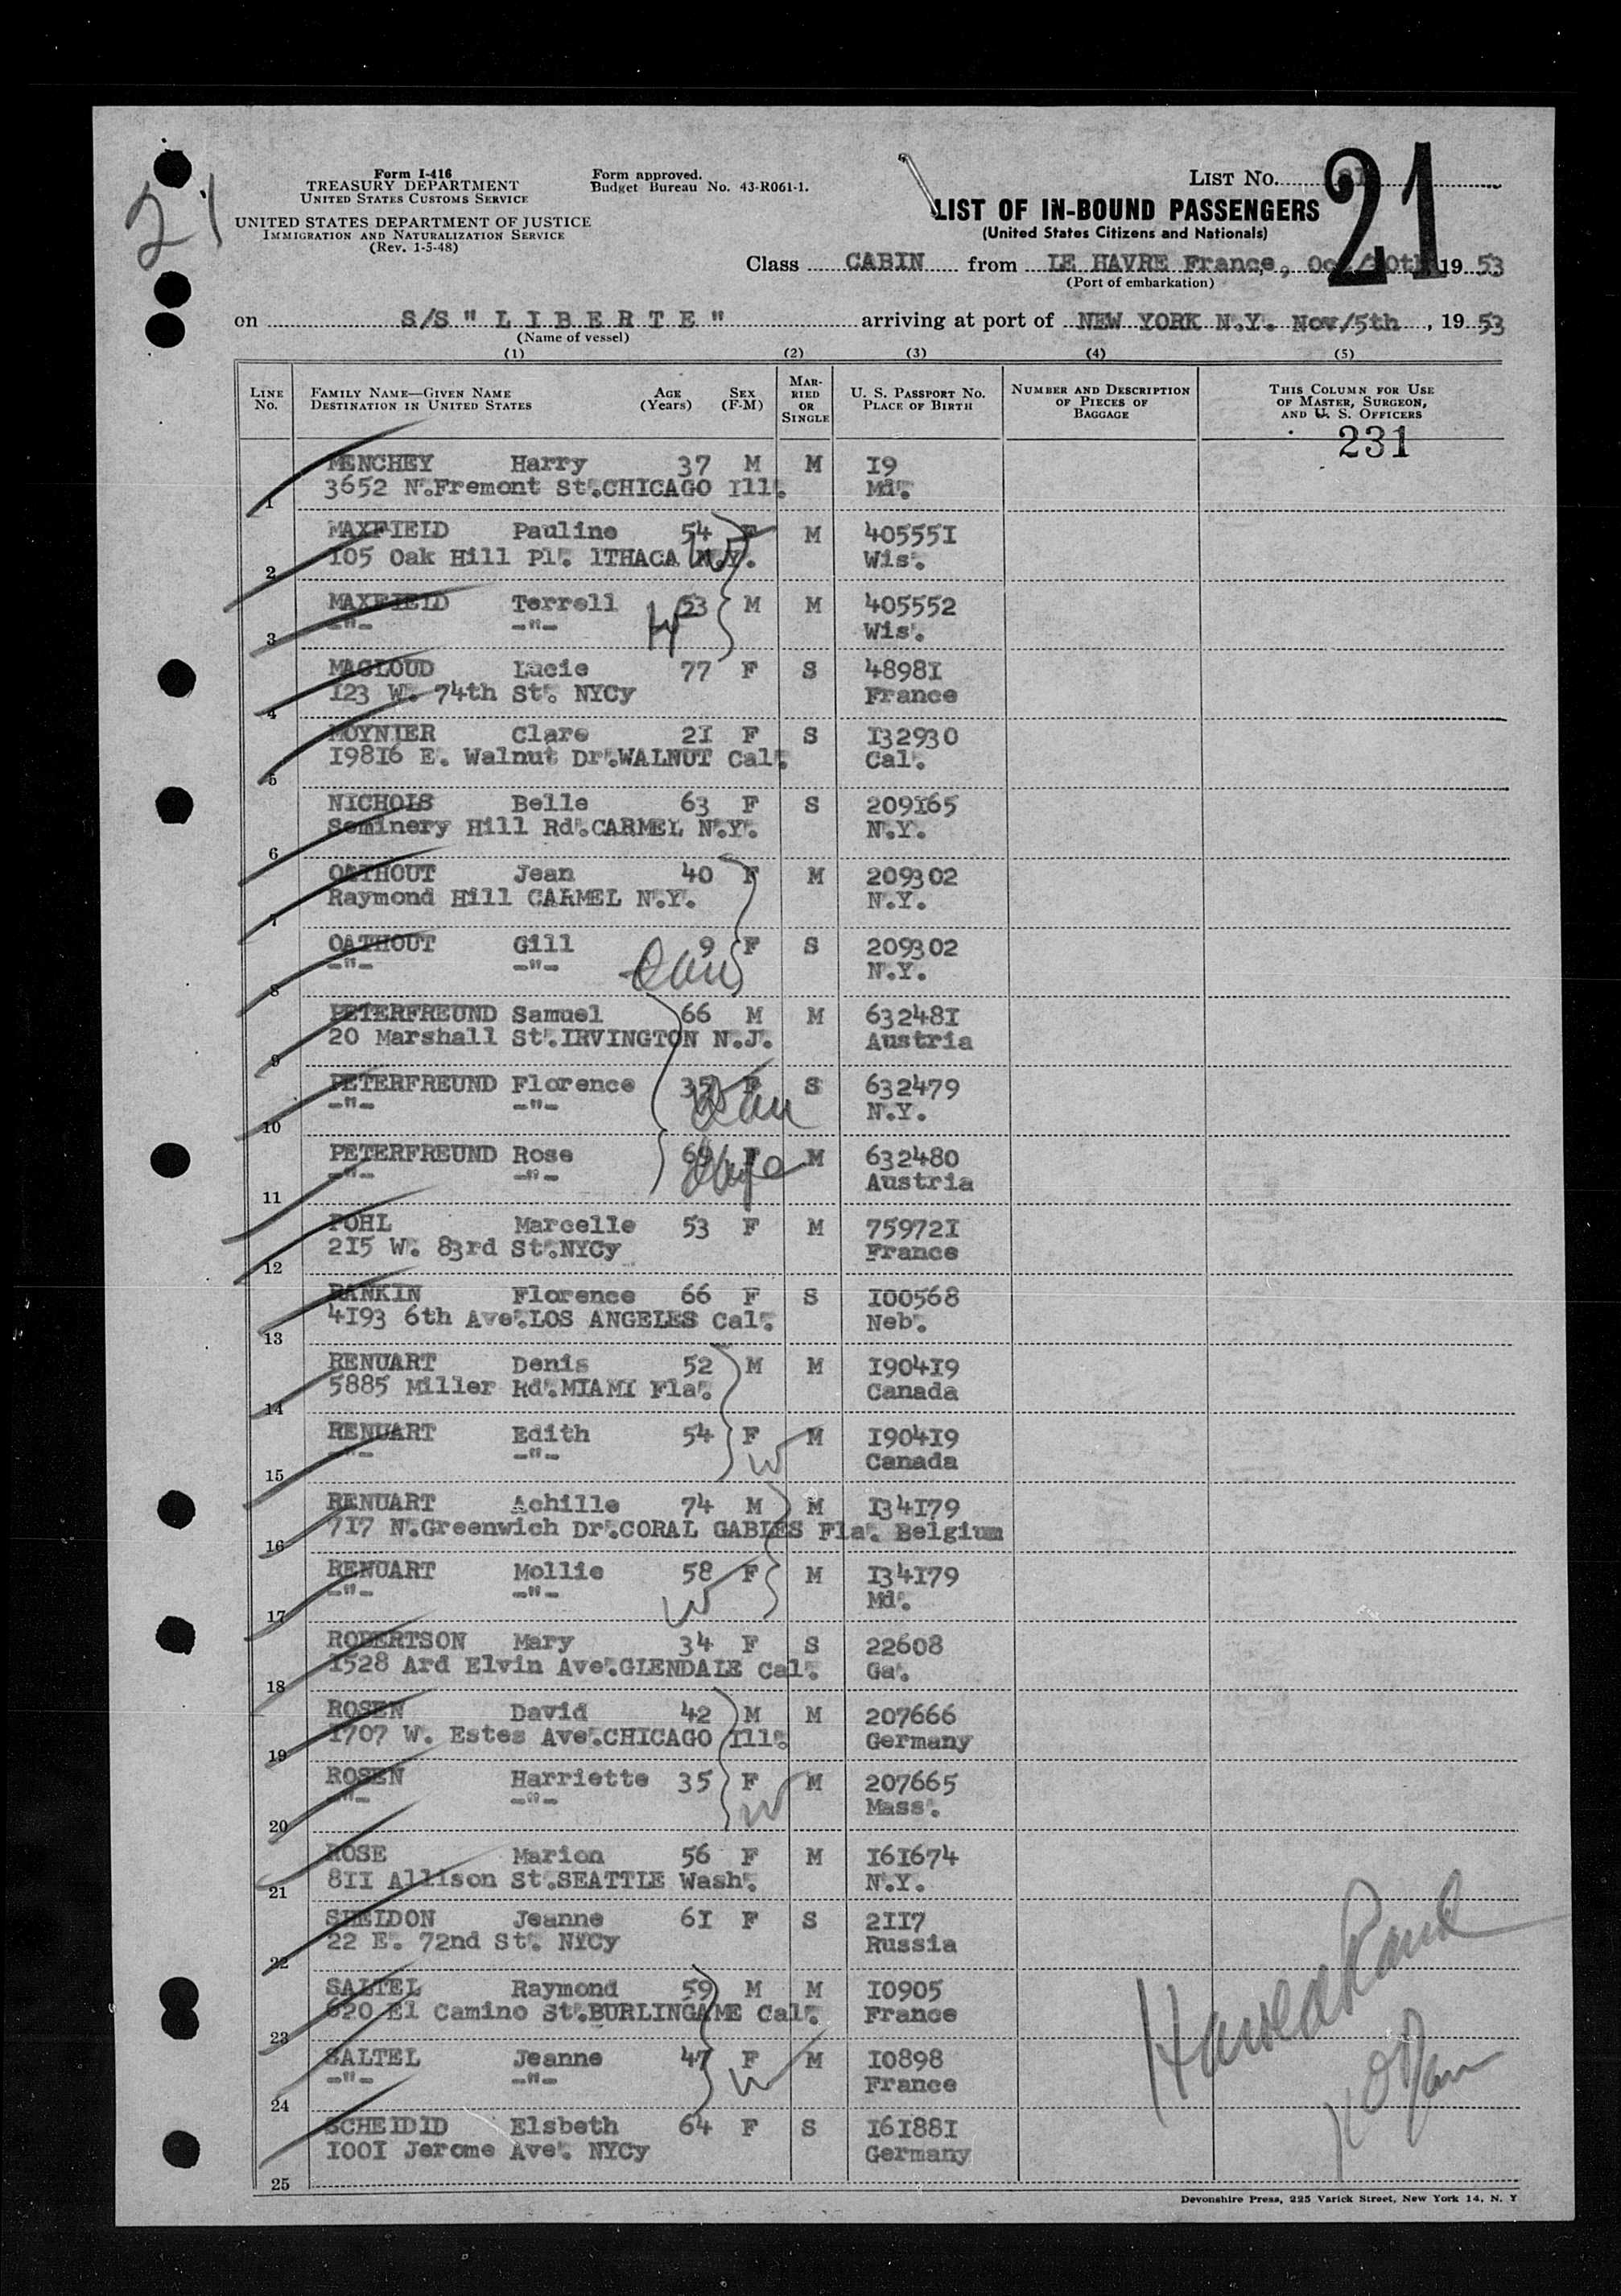 21
Form I-416
TREASURY DEPARTMENT
UNITED STATES CUSTOMS SERVICE
UNITED STATES DEPARTMENT OF JUSTICE
IMMIGRATION AND NATURALIZATION SERVICE
(Rev. 1-5-48)
Form approved.
Budget Bureau No. 43-R061-1.
LIST No. 21
LIST OF IN-BOUND PASSENGERS
(United States Citizens and Nationals)
Class CABIN from LE HAVRE France, 19 53
(Port of embarkation)
on S/S " L I B E R T E " arriving at port of NEW YORK N.Y. Nov/5th, 19 53
(Name of vessel)
(1) (2) (3) (4) (5)
LINE No. FAMILY NAME—GIVEN NAME DESTINATION IN UNITED STATES AGE (Years) SEX (F-M) MARRIED OR SINGLE U. S. PASSPORT No. PLACE OF BIRTH NUMBER AND DESCRIPTION OF PIECES OF BAGGAGE THIS COLUMN FOR USE OF MASTER, SURGEON, AND U. S. OFFICERS
231
MENCHEY Harry 37 M M I9
1 3652 N.Fremont St.CHICAGO Ill. Md.
MAXFIELD Pauline 54 F M 40555I
2 I05 Oak Hill Pl. ITHACA N.Y. Wis.
MAXFIELD Terrell 53 M M 405552
3 -"- -"- Wis.
MAGLOUD Lucie 77 F S 4898I
4 I23 W. 74th St. NYCy France
MOYNIER Clare 2I F S I32930
5 I9816 E. Walnut Dr.WALNUT Cal. Cal.
NICHOLS Belle 63 F S 209I65
6 Seminery Hill Rd.CARMEL N.Y. N.Y.
OATHOUT Jean 40 F M 209302
7 Raymond Hill CARMEL N.Y. N.Y.
OATHOUT Gill 9 F S 209302
8 -"- -"- N.Y.
PETERFREUND Samuel 66 M M 63248I
9 20 Marshall St.IRVINGTON N.J. Austria
PETERFREUND Florence 35 F S 632479
10 -"- -"- N.Y.
PETERFREUND Rose F M 632480
11 -"- -"- Austria
POHL Marcelle 53 F M 75972I
12 2I5 W. 83rd St.NYCy France
RANKIN Florence 66 F S I00568
13 4I93 6th Ave.LOS ANGELES Cal. Neb.
RENUART Denis 52 M M I904I9
14 5885 Miller Rd.MIAMI Fla. Canada
RENUART Edith 54 F M I904I9
15 -"- -"- Canada
RENUART Achille 74 M M I34I79
16 7I7 N.Greenwich Dr.CORAL GABLES Fla. Belgium
RENUART Mollie 58 F M I34I79
17 -"- -"- Md.
ROBERTSON Mary 34 F S 22608
18 I528 Ard Elvin Ave.GLENDALE Cal. Ga.
ROSEN David 42 M M 207666
19 I707 W. Estes Ave.CHICAGO Ill. Germany
ROSEN Harriette 35 F M 207665
20 -"- -"- Mass.
ROSE Marion 56 F M I6I674
21 8II Allison St.SEATTLE Wash. N.Y.
SHELDON Jeanne 6I F S 2II7
22 22 E. 72nd St. NYCy Russia
SALTEL Raymond 59 M M I0905
23 620 El Camino St.BURLINGAME Cal. France
SALTEL Jeanne 47 F M I0898
24 -"- -"- France
SCHEIDID Elsbeth 64 F S I6I88I
25 I00I Jerome Ave. NYCy Germany
Devonshire Press, 225 Varick Street, New York 14, N. Y